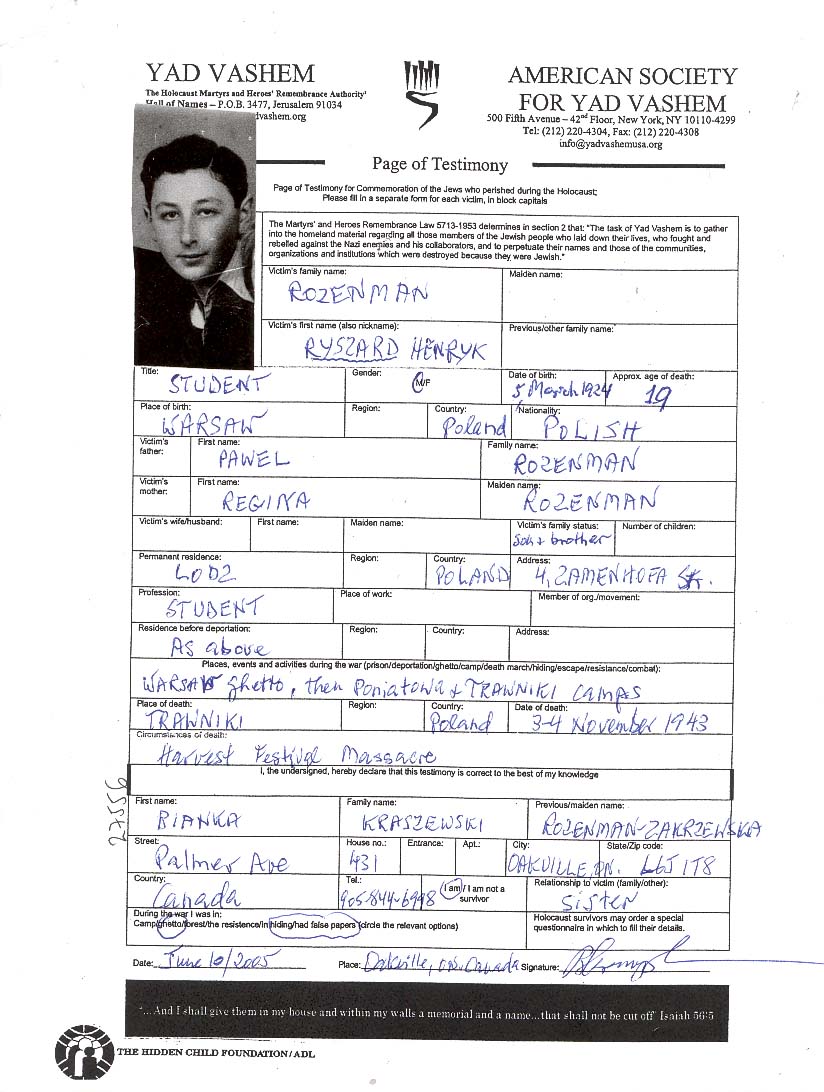 YAD VASHEM
The Holocaust Martyrs and Heroes' Remembrance Authority'
Hall of Names – P.O.B. 3477, Jerusalem 91034
dvashem.org
AMERICAN SOCIETY
FOR YAD VASHEM
500 Fifth Avenue – 42nd Floor, New York, NY 10110-4299
Tel: (212) 220-4304, Fax: (212) 220-4308
info@yadvashemusa.org
Page of Testimony
Page of Testimony for Commemoration of the Jews who perished during the Holocaust;
Please fill in a separate form for each victim, in block capitals
The Martyrs' and Heroes Remembrance Law 5713-1953 determines in section 2 that: "The task of Yad Vashem is to gather
into the homeland material regarding all those members of the Jewish people who laid down their lives, who fought and
rebelled against the Nazi enemies and his collaborators, and to perpetuate their names and those of the communities,
organizations and institutions which were destroyed because they were Jewish."
Victim's family name: Maiden name:
ROZENMAN
Victim's first name (also nickname): Previous/other family name:
RYSZARD HENRYK
Title: Gender: Date of birth: Approx. age of death:
STUDENT M/F 5 March 1924 19
Place of birth: Region: Country: Nationality:
WARSAW Poland POLISH
Victim's father: First name: Family name:
PAWEL ROZENMAN
Victim's mother: First name: Maiden name:
REGINA ROZENMAN
Victim's wife/husband: First name: Maiden name: Victim's family status: Number of children:
Son + brother
Permanent residence: Region: Country: Address:
LODZ POLAND 4, ZAMENHOFA Str.
Profession: Place of work: Member of org./movement:
STUDENT
Residence before deportation: Region: Country: Address:
As above
Places, events and activities during the war (prison/deportation/ghetto/camp/death march/hiding/escape/resistance/combat):
WARSAW ghetto, then Poniatowa + TRAWNIKI camps
Place of death: Region: Country: Date of death:
TRAWNIKI Poland 3-4 November 1943
Circumstances of death:
Harvest Festival Massacre
I, the undersigned, hereby declare that this testimony is correct to the best of my knowledge
27556
First name: Family name: Previous/maiden name:
BIANKA KRASZEWSKI ROZENMAN-ZAKRZEWSKA
Street: House no.: Entrance: Apt.: City: State/Zip code:
Palmer Ave 431 OAKVILLE, ON. L6J 1T8
Country: Tel.: I am / I am not a survivor Relationship to victim (family/other):
Canada 905-844-6998 SISTER
During the war I was in: Holocaust survivors may order a special
Camp/ghetto/forest/the resistance/in hiding/had false papers (circle the relevant options) questionnaire in which to fill their details.
Date: June 10/2005 Place: Oakville, ON. Canada Signature:
"...And I shall give them in my house and within my walls a memorial and a name...that shall not be cut off" Isaiah 56:5
THE HIDDEN CHILD FOUNDATION/ADL